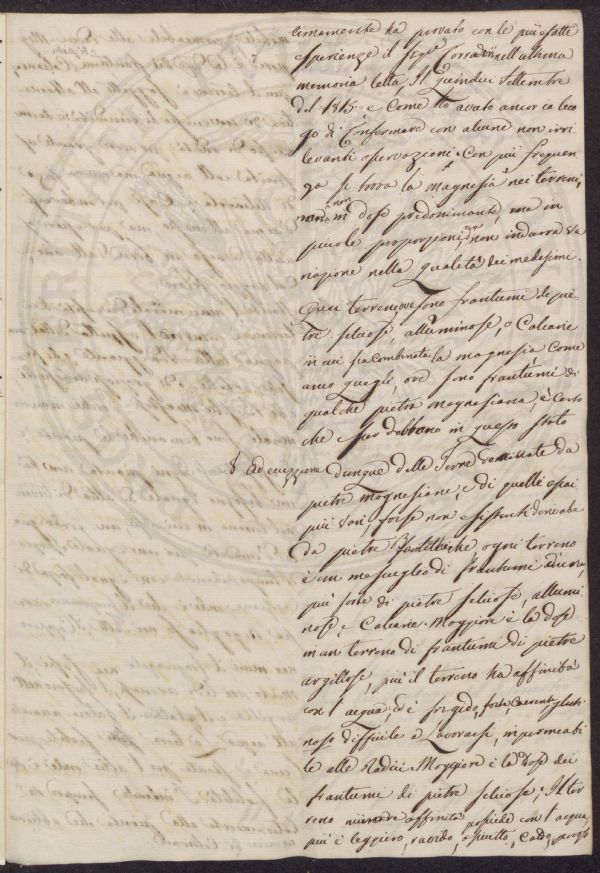 timamente ha provato con le più esatte
esperienze il Sigr. Corradori nell'ultima
memoria letta Il Quindici Settembre
del 1815 e Come ho avuto ancor io luo
go di Confermare con alcune non irri
levanti operazioni. Con più frequen
za si trova la magnesia nei terreni,
non in dose predominante, ma in
piccole proporzioni, non indurra va
riazione nella qualità dei medesimi.
Quei terreni ove sono frantumi di pie
tre siliciose, alluminose, o Calcarie
in cui sia Combinata la magnesia, Come
anco quegli, ove sono frantumi di
qualche pietra magnesiana, è Certo
che esser debbono in questo stato
Ad eccezzione dunque delle Terre resultate da
pietre magnesiane, e di quelle assai
più rari, forse non esistenti derivate
da pietre ogni terreno
è un mescuglio di frantumi di una,
più sorte di pietre siliciose, allumi
nose, e Calcarie. Maggiore è la dose
in un terreno di frantumi di pietre
argillose, più il terreno ha affinità
con l'acqua, ed è rigido, forte, Coerente, gluti
noso difficile a Lavorarsi, impermeabi
le alle Radici. Maggiore è la dose dei
frantumi di pietre siliciose, Il ter
reno minore affinità possiede con l'acqua,
più è leggiero, ruvido, asciutto, Caldo,